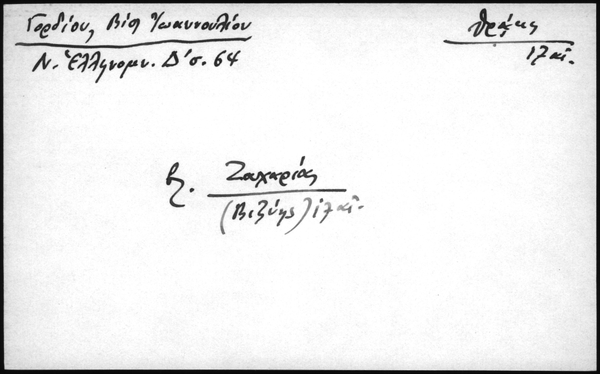 Γορδίου, Βίος Ἰωαννουλίου
Ν. Ἑλληνομν. Δ' σ. 64
Θράκης
17 αἰ.
βλ. Ζαχαρίας
(Βιζύης) 17 αἰ.